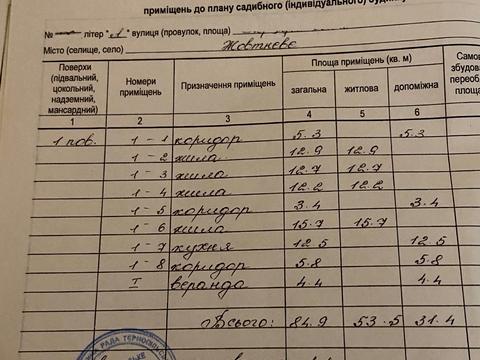 приміщень до плану садибного (індивідуального)
№ — літер "А" вулиця (провулок, площа)
Місто (селище, село) Жовтнево
Поверхи (підвальний, цокольний, надземний, мансардний) Номери приміщень Призначення приміщень Площа приміщень (кв. м)
загальна житлова допоміжна
1 2 3 4 5 6
1 пов. 1 - 1 коридор 5.3 5.3
1 - 2 жила 12.9 12.9
1 - 3 жила 12.7 12.7
1 - 4 жила 12.2 12.2
1 - 5 коридор 3.4 3.4
1 - 6 жила 15.7 15.7
1 - 7 кухня 12.5 12.5
1 - 8 коридор 5.8 5.8
I веранда 4.4 4.4
Всього: 84.9 53.5 31.4
РАДА